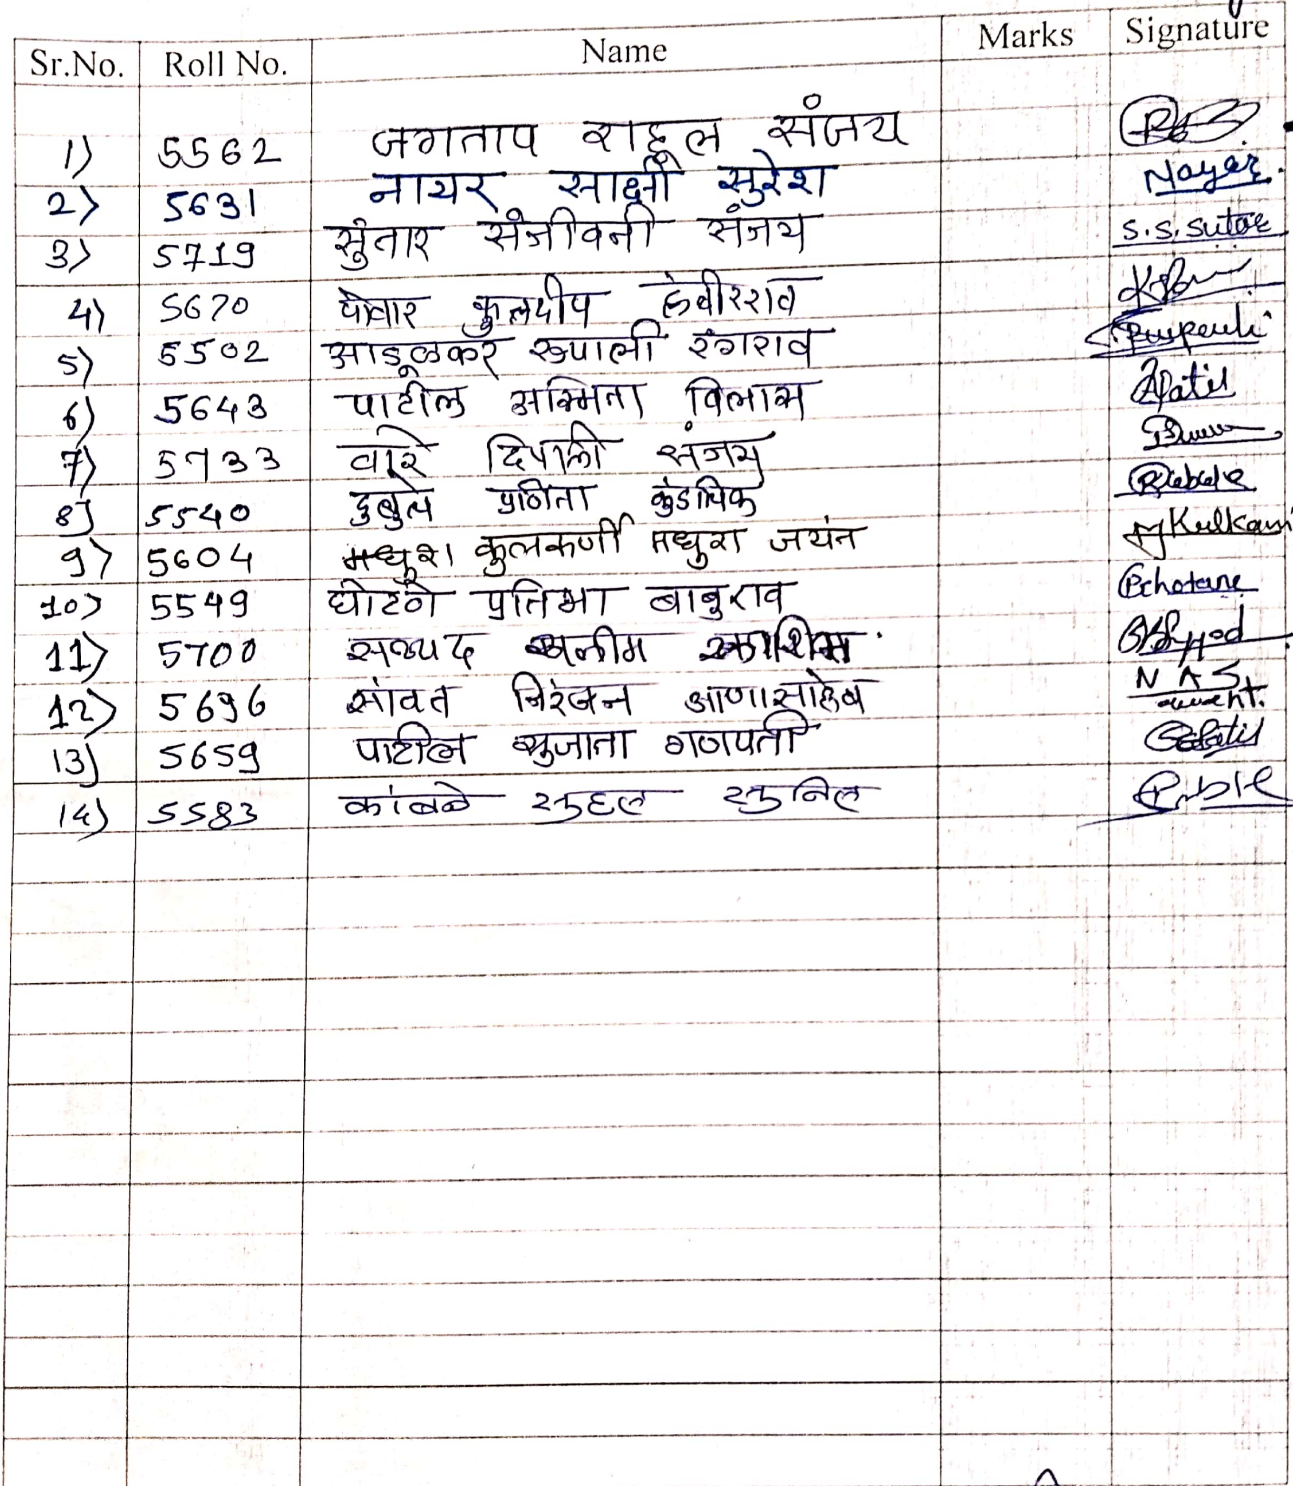 Sr.No. Roll No. Name Marks Signature
1) 5562 जगताप राहूल संजय
2) 5631 नायर साक्षी सुरेश Nayar.
3) 5719 सुंतार संजीवनी संजय S.S.Sutar
4) 5670 पोवार कुलदीप हंबीरराव
5) 5502 आडूळकर रुपाली रंगराव
6) 5643 पाटील अस्मिता विलास Apatil
7) 5733 वारे दिपाली संजय
8) 5540 डुबुले प्रणिता कुंडलिक
9) 5604 कुलकर्णी मधुरा जयंत Kulkarni
10) 5549 घोटणे प्रतिभा बाबुराव Pghotane
11) 5700 सय्यद
12) 5696 सांवत निरंजन आणासाहेब N A S
13) 5659 पाटील सुजाता गणपती
14) 5583 कांबळे सुनिल